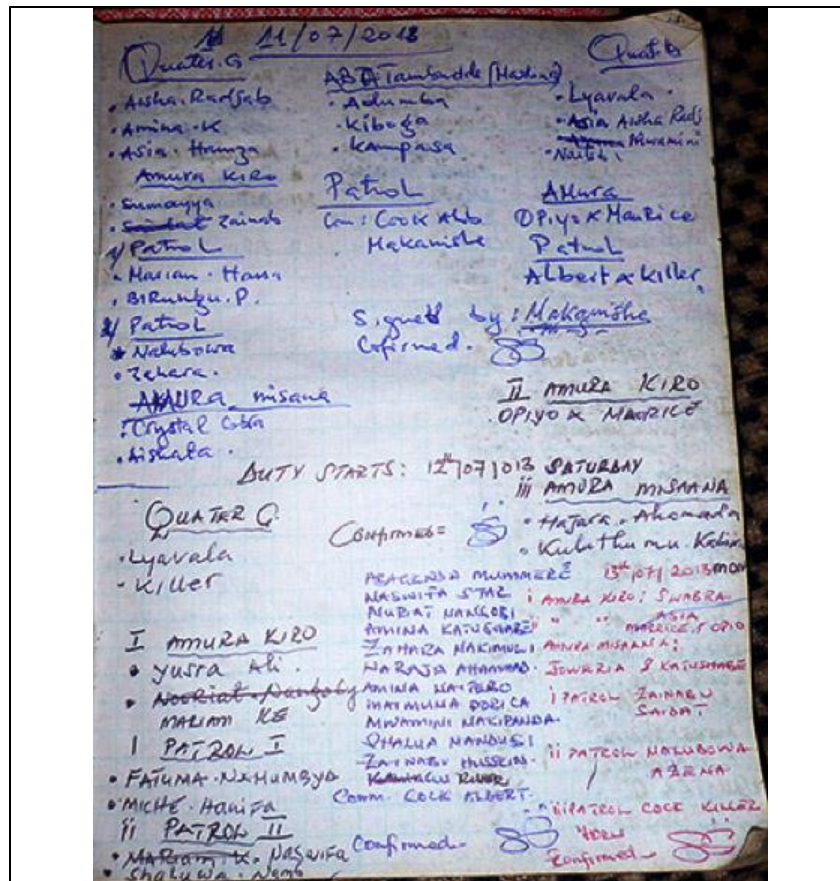 11/07/2013
Quater.G
• Aisha.Radjab
• Amina.K
• Asia.Hamza
Amura Kiro
• Sumayya
• Zainab
1/ Patrol
• Mariam.
• Birungu.P.
2/ Patrol
• Nalubowa
• Zahara.
AMURA misana
• Crystal Cobra
• Aishata.
ABTA Tambudde
• Adumba
• Kiboga
• Kampasa
Patrol
Com: Cook Alb
Makanishe
Quat.G
• Lyavala.
• Asia Aisha Radj
Mwamini
Amura
Opiyo & Maurice
Patrol
Albert & Killer
Signed by: Makanishe
Cofirmed.
II AMURA KIRO
OPIYO & MAURICE
DUTY STARTS: 12th/07/013 SATURDAY
iii AMURA MISAANA
• Hajara. Ahamada
• Kuluthumu. Kabira
QUATER G.
• Lyavala
• Killer
Confirmed=
I AMURA KIRO
• Yusra Ali.
• Nooriat. Nangoby
MARIAM KE
I PATROL I
• FATUMA. NAHUMBYA
• MICHE. Hanifa
ii PATROL II
• MARIAM. K. Naswifa
• Shaluwa.
MUHAMMERE
NASWIFA STAR
NURIAT NANGOBI
AMINA KATUSHABE
ZAHARA NAKIMULI
NARAJA AHAMMAD.
AMINA NAITERO
MAYMUNA DORICA
MWAMINI NAKIPANDA.
SHALUA MANDUSI
ZAINABU HUSSEIN.
RIVER
Comm. COCK ALBERT.
Confirmed-
13th/07/2013 mon
i AMURA KIRO: SWABRA
" " ASIA
MARRICE & OPIO
AMURA MISAANA:
JOWERIA & KATUSHABE
i PATROL ZAINABU
SAIDAT
ii PATROL NALUBOWA
AZENA
iii PATROL COCK KILLER
Confirmed-